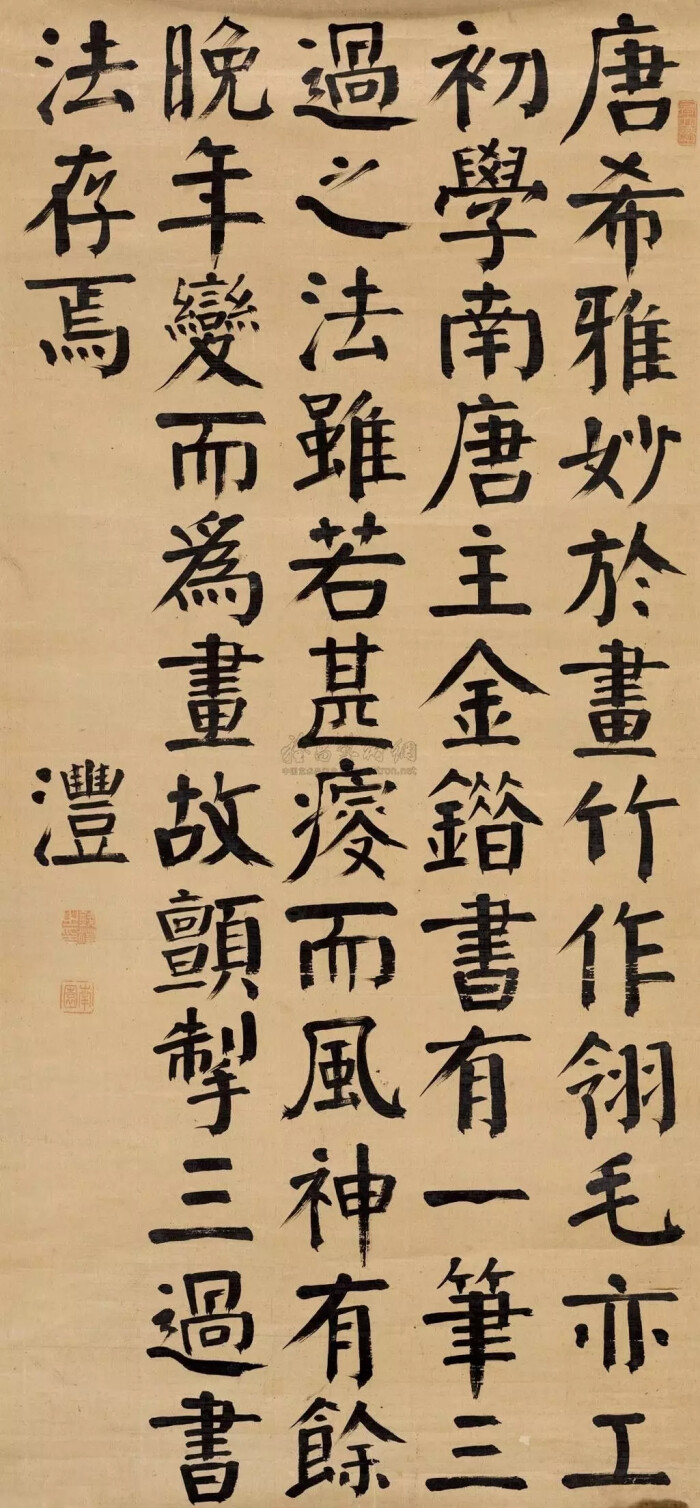 唐希雅妙於畫竹作翎毛亦工
初學南唐主金錯書有一筆三
過之法雖若甚瘦而風神有餘
晚年變而爲畫故顫掣三過書
法存焉
灃
南園